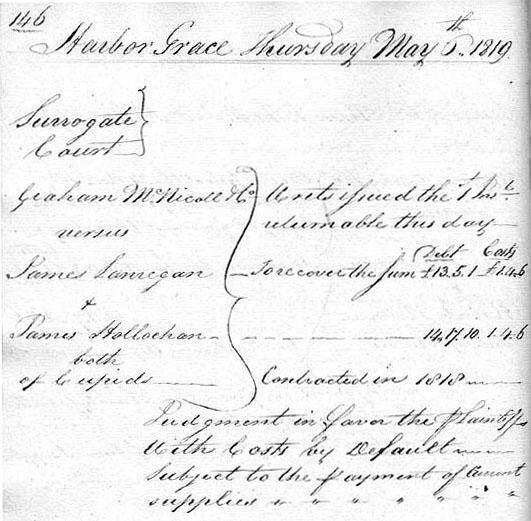 146
Harbor Grace Thursday May 6th. 1819
Surrogate
Court
Graham McNicoll & Co
Writs issued the 1st Inst
versus
returnable this day
Debt Costs
James Lanregan
To recover the Sum £13.5.1 £1.4.6
&
James Hollochan
14.17.10. 1.4.6
both
of Cupids
Contracted in 1818
Judgment in favor the Plaintiffs
With Costs by Default
Subject to the payment of Current
supplies